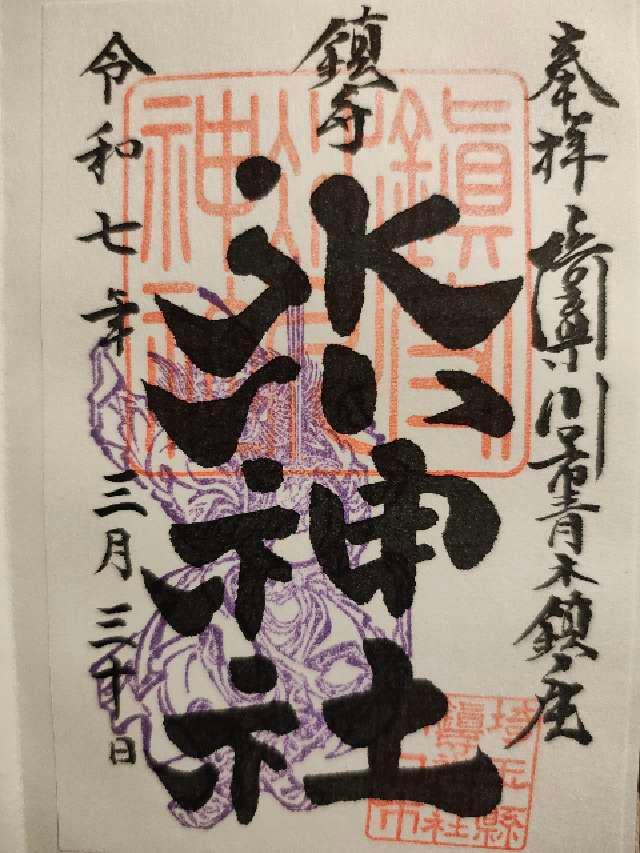 奉拝 埼玉県川口市青木鎮座
鎮守
氷川神社
令和七年 三月三十日
鎮守
氷川
神社
埼玉縣